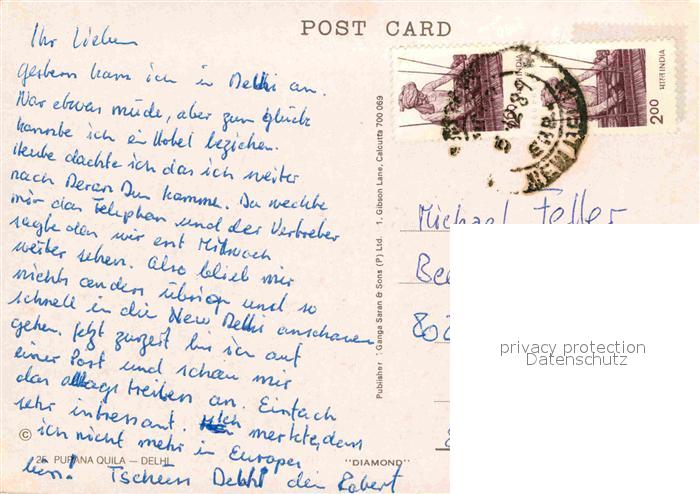 POST CARD
Ihr Lieben
gestern kam ich in Delhi an.
War etwas müde, aber zum Glück
konnte ich ein Hotel beziehen.
Heute dachte ich das ich weiter
nach Deran Dun komme. Da weckte
mir das Telephon und der Vertreber
sagte den wir erst Mittwoch
weiter sehen. Also blieb mir
nichts anders übrig und so
schnell in die New Delhi anschauen
gehen. Jetzt zurzeit bin ich auf
einer Post und schau mir
das alltags treiben an. Einfach
sehr intressant. Ich merkte, dass
ich nicht mehr in Europa
bin! Tschüss Delhi dein Robert
© 25 PURANA QUILA — DELHI
"DIAMOND"
Publisher : Ganga Saran & Sons (P) Ltd. 1, Gibson Lane, Calcutta 700 069
भारत INDIA
2.00
Michael Feller
Bee
802
privacy protection
Datenschutz